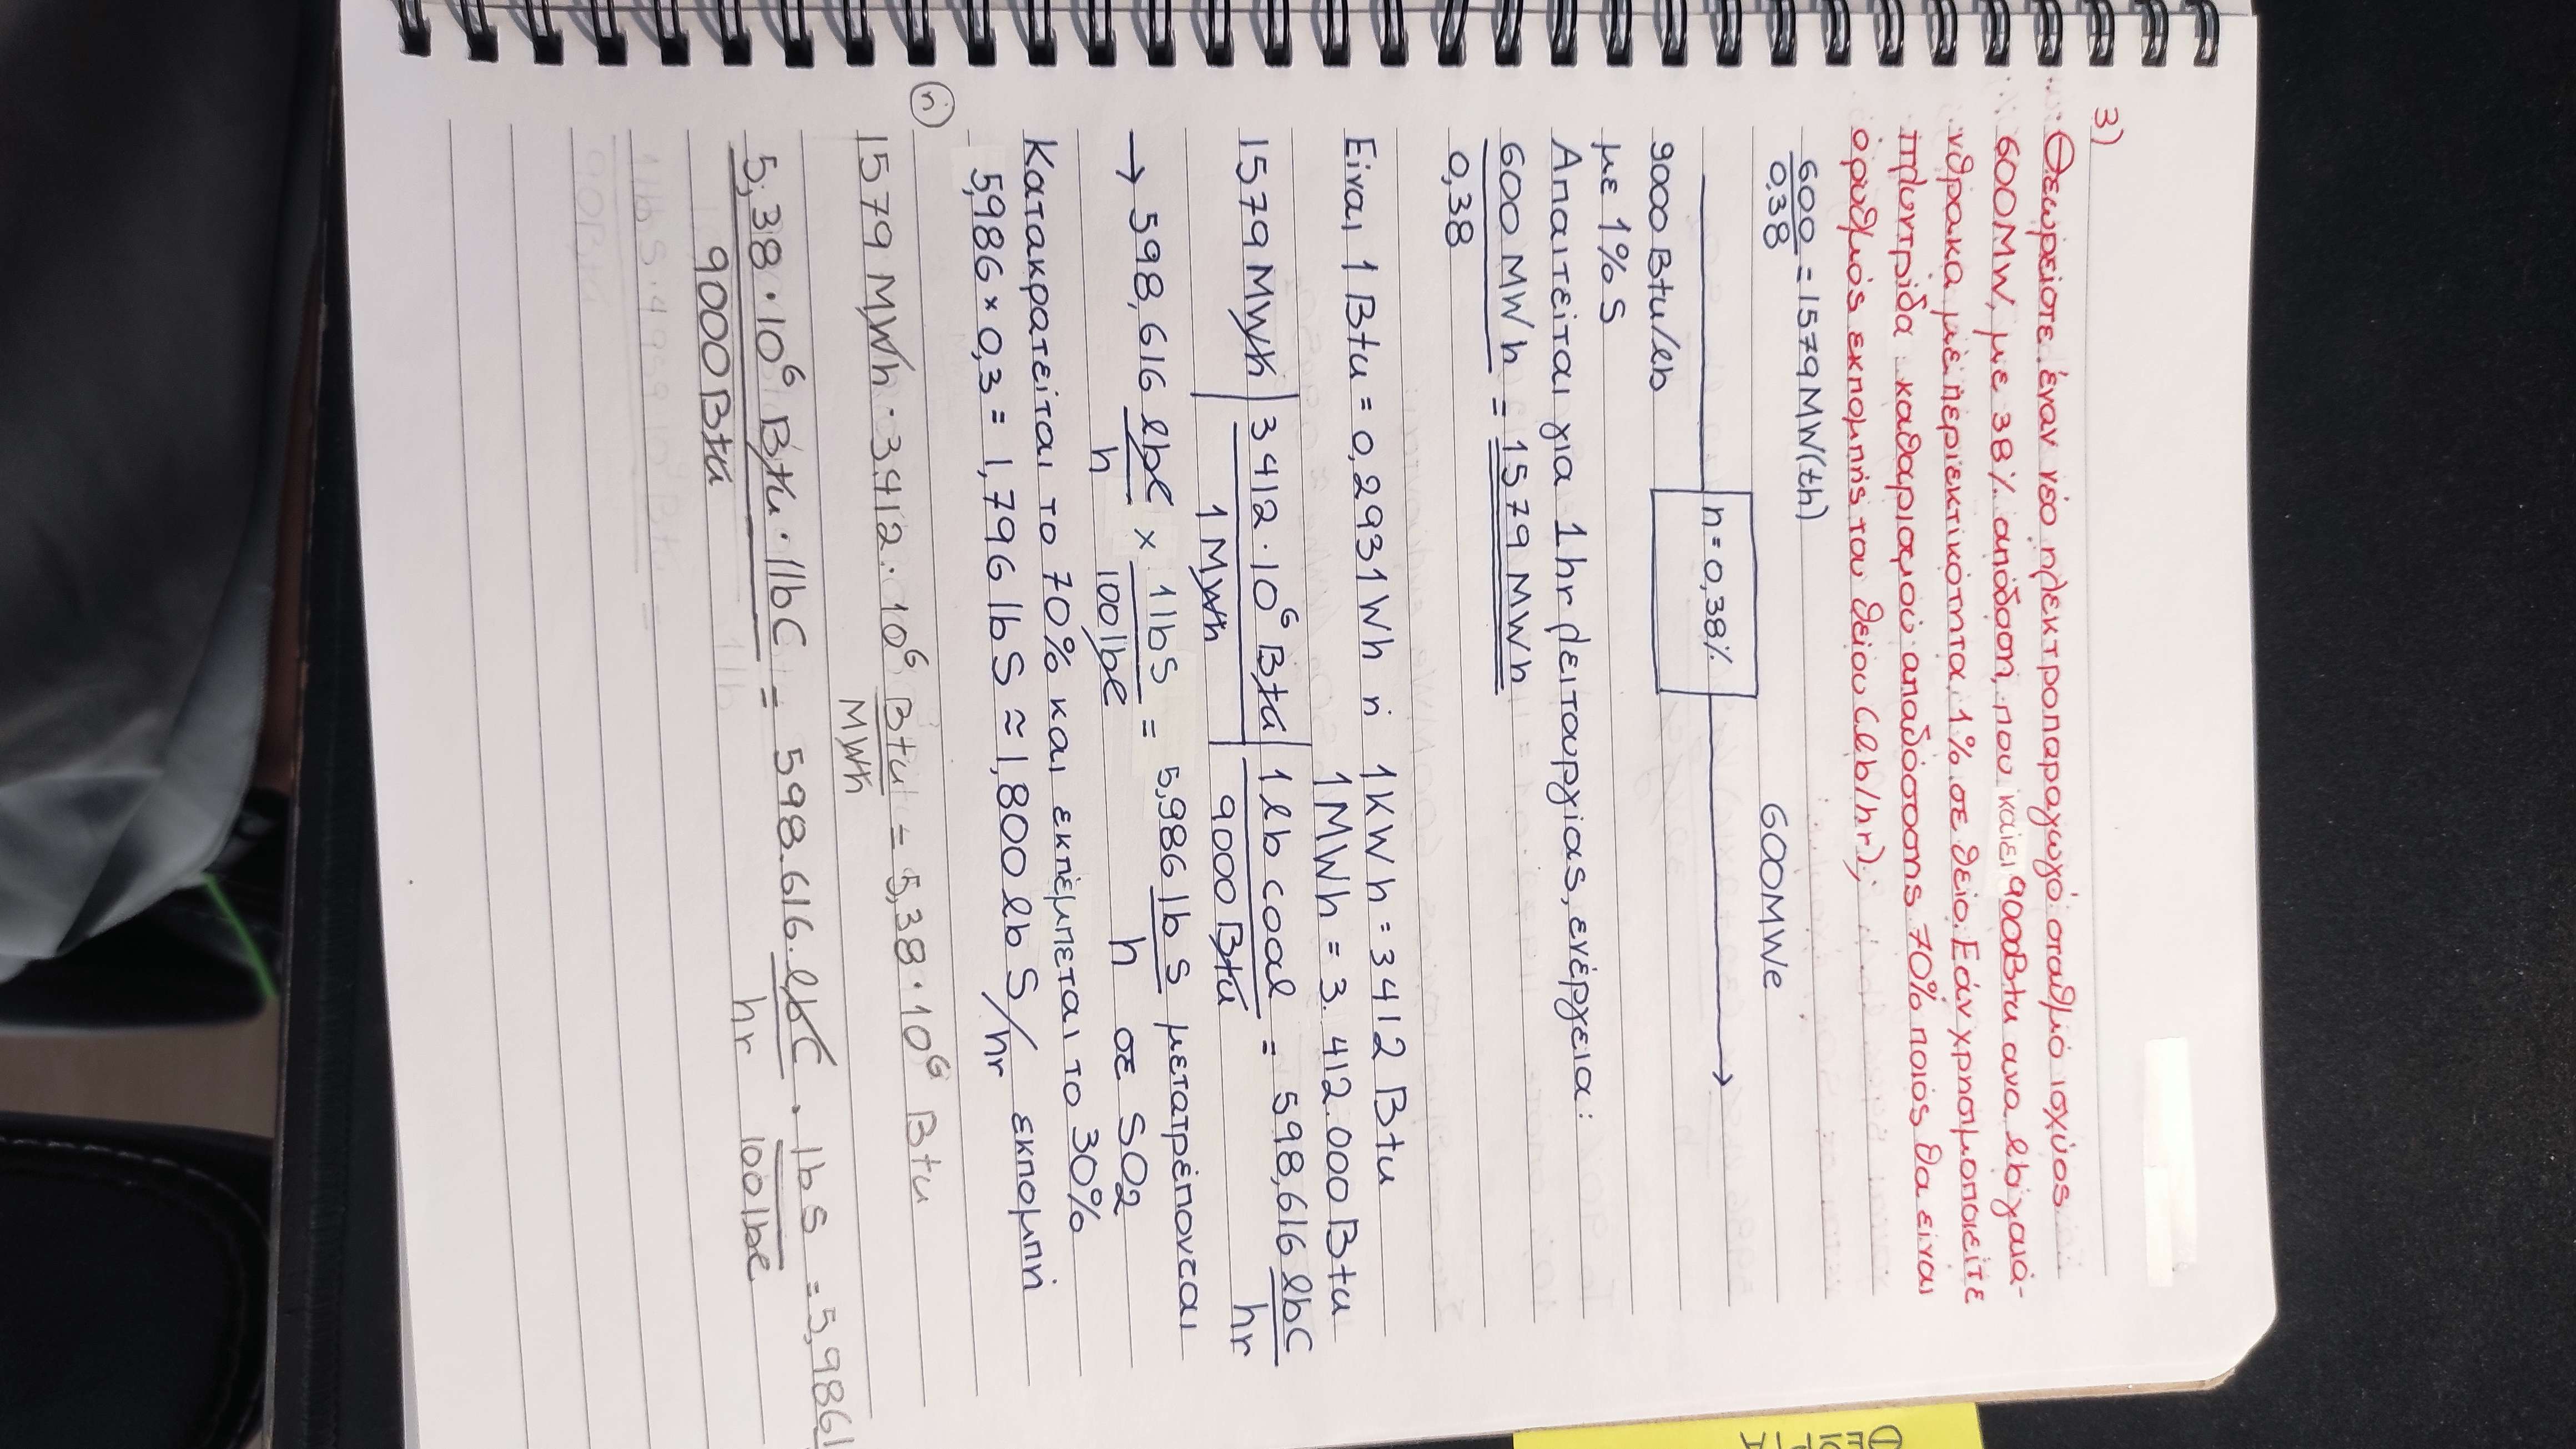 3)
Θεωρείστε έναν νέο ηλεκτροπαραγωγό σταθμό ισχύος
600MW, με 38% απόδοση, που καίει 9000Btu ανα lb γαιά-
νθρακα με περιεκτικότητα 1% σε θείο. Εάν χρησιμοποιείτε
πλυντρίδα καθαρισμού αποδόσοσης 70% ποιός θα είναι
ό ρυθμός εκπομπής του θείου (lb/hr);
600/0,38 = 1579MW(th)
600MWe
n=0,38%
9000Btu/lb
με 1% S
Απαιτείται για 1hr λειτουργίας, ενέργεια:
600MWh/0,38 = 1579MWh
Είναι 1Btu = 0,2931Wh ή 1KWh = 3412Btu
1MWh = 3.412.000Btu
1579MWh | 3412·10⁶Btu/1MWh | 1lb coal/9000Btu = 598,616 lbC/hr
→ 598,616 lbC/h x 1lbS/100lbC = 5,986 lb S/h μετατρέπονται
σε SO2
Κατακρατείται το 70% και εκπέμπεται το 30%
5,986 x 0,3 = 1,796 lb S ≈ 1,800 lb S/hr εκπομπή
ή
1579MWh · 3.412·10⁶ Btu/MWh = 5,38·10⁶ Btu
5,38·10⁶ Btu · 1lbC/9000Btu = 598.616 lbC/hr · lbS/100lbC = 5,986